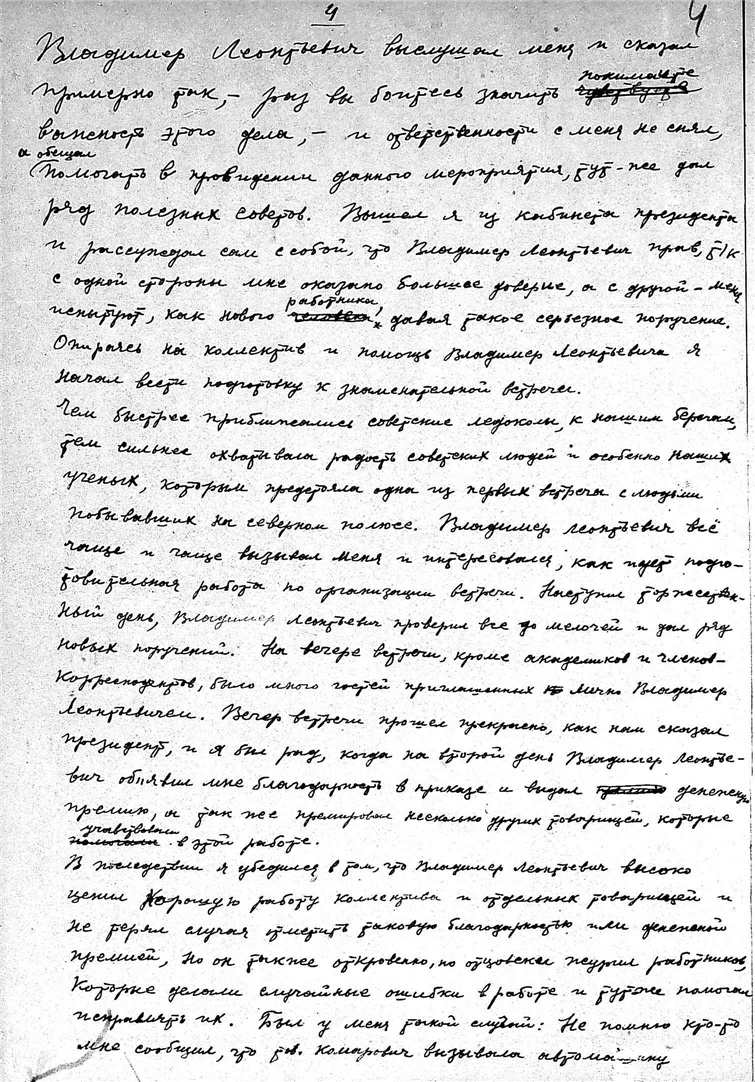 4
4
Владимер Леонтьевич выслушал меня и сказал
понимаете
примерно так, – раз вы боитесь значить чувствуете
важность этого дела, – и ответственности с меня не снял,
а обещал
помогать в провидении данного мероприятия, тут-же дал
ряд полезных советов. Вышел я из кабинета президента
и рассуждал сам с собой, что Владимер Леонтьевич прав, т/к
с одной стороны мне оказано большее доверие, а с другой – меня
работника!
испытуют, как нового человека, давая такое серьезное поручение.
Опираясь на коллектив и помощь Владимер Леонтьевича я
начал вести подготовку к знаменательной встречеи.
Чем быстрее приближались советские ледоколы, к нашим берегам,
тем сильнее охватывала радость советских людей и особенно наших
ученых, которым предстояла одна из первых встреча с людьми
побывавших на северном полюсе. Владимер Леонтьевич всё
чаще и чаще вызывал меня и интересовался, как идет подго-
товительная работа по организации встречи. Наступил торжествен-
ный день, Владимер Леонтьевич проверил все до мелочей и дал ряд
новых поручений. На вечере встречи, кроме академиков и членов-
корреспондентов, было много гостей приглашенных лично Владимер
Леонтьевичем. Вечер встречи прошел прекрасно, как нам сказал
президент, и я был рад, когда на второй день Владимер Леонтье-
вич объявил мне благодарность в приказе и выдал премию денежную
премию, а так же премировал несколько других товарищей, которые
участвовали
помогали в этой работе.
В последствии я убедился в том, что Владимер Леонтьевич высоко
ценил хорошую работу коллектива и отдельных товарищей и
не терял случая отметить таковую благодарностью или денежной
премией, но он также откровенно, по отцовски журил работников,
которые делали случайные ошибки в работе и тутже помогал
исправлять их. Был у меня такой случай: Не помню кто-то
мне сообщил, что тов. Комарович вызывала автомашину